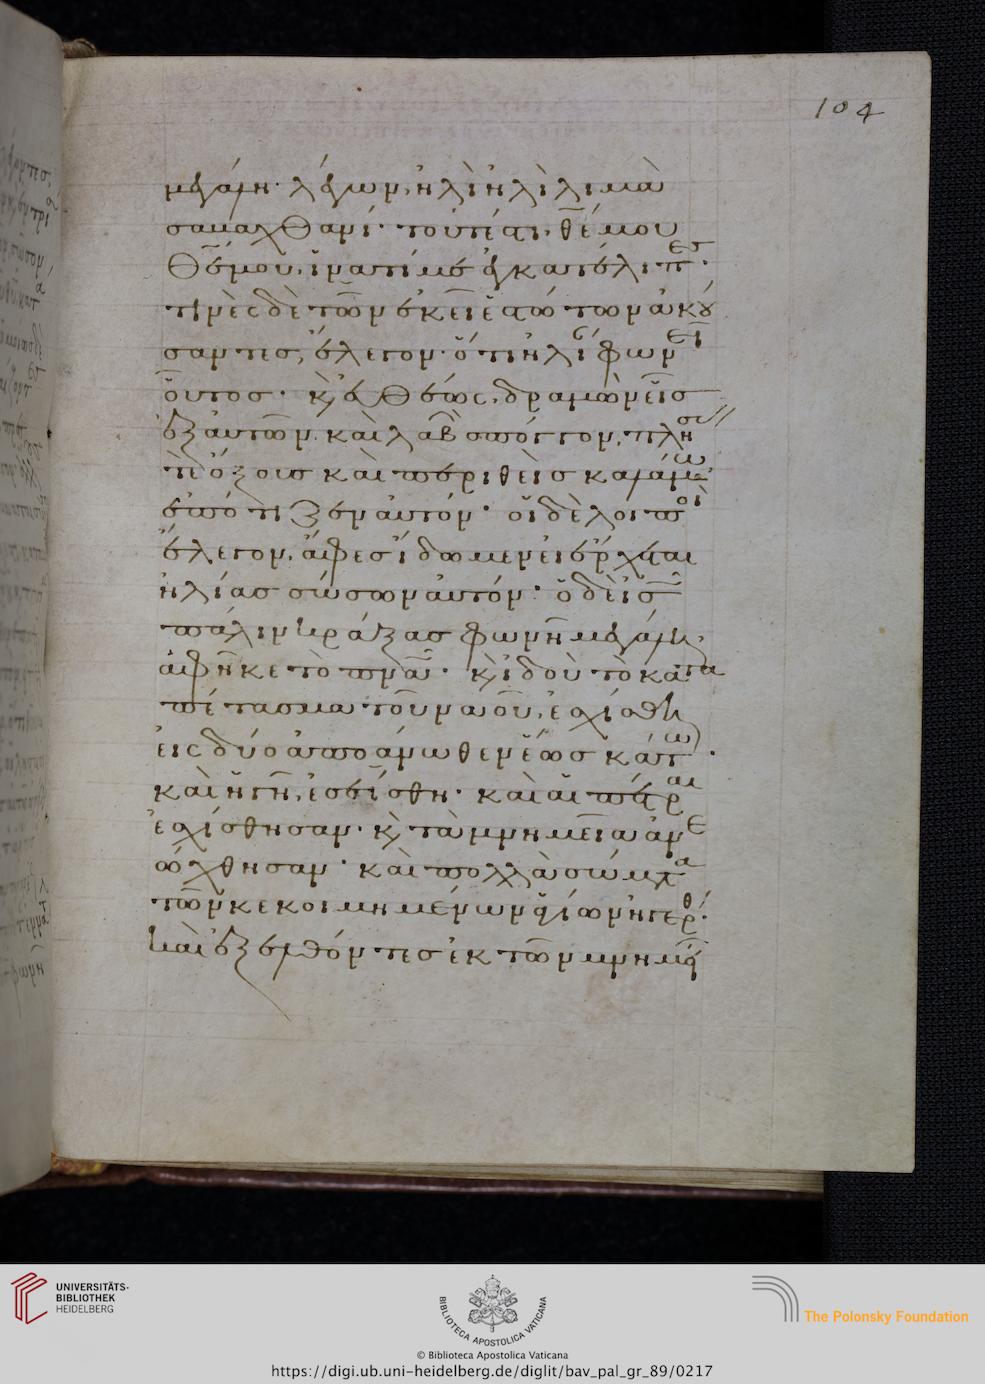 104
μεγάλη· λέγων, ἠλὶ ἠλὶ λιμὰ
σαμαχθανί· τοῦτ' ἔστι, θεέ μου
θεέ μου, ἵνατί με ἐγκατέλιπες·
τινὲς δὲ τῶν ἐκεῖ ἑστώτων ἀκού
σαντες, ἔλεγον· ὅτι ἠλίαν φωνεῖ
οὗτος· κ εὐθέως, δραμὼν εἷς
ἐξ αὐτῶν. καὶ λαβὼν σπόγγον, πλήσας
τὲ ὄξους καὶ περιθεὶς καλάμω
ἐπότιζεν αὐτόν· οἱ δὲ λοιποὶ
ἔλεγον, ἄφες ἴδωμεν εἰ ἔρχεται
ἠλίας σώσων αὐτόν· ὁ δὲ ις
πάλιν κράξας φωνῆ μεγάλη,
ἀφῆκε τὸ πνα· κ ἰδοὺ τὸ κατα
πέτασμα τοῦ ναοῦ, ἐσχίσθη
εἰς δύο ἀπὸ ἄνωθεν ἕως κάτω·
καὶ ἡ γῆ, ἐσείσθη· καὶ αἱ πέτραι
ἐσχίσθησαν· κ τὰ μνημεῖα ἀνε
ώχθησαν· καὶ πολλὰ σώματα
τῶν κεκοιμημένων ἁγίων ἠγέρθη·
καὶ ἐξελθόντες ἐκ τῶν μνημεί
UNIVERSITÄTS-
BIBLIOTHEK
HEIDELBERG
BIBLIOTECA APOSTOLICA VATICANA
The Polonsky Foundation
© Biblioteca Apostolica Vaticana
https://digi.ub.uni-heidelberg.de/diglit/bav_pal_gr_89/0217